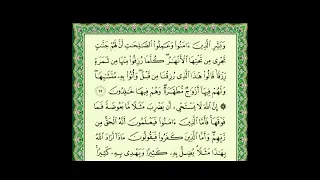 وَبَشِّرِ الَّذِينَ ءَامَنُوا وَعَمِلُوا الصَّٰلِحَٰتِ أَنَّ لَهُمْ جَنَّٰتٍ
تَجْرِى مِن تَحْتِهَا الْأَنْهَٰرُ كُلَّمَا رُزِقُوا مِنْهَا مِن ثَمَرَةٍ
رِّزْقًا قَالُوا هَٰذَا الَّذِى رُزِقْنَا مِن قَبْلُ وَأُتُوا بِهِ مُتَشَٰبِهًا
وَلَهُمْ فِيهَا أَزْوَٰجٌ مُّطَهَّرَةٌ وَهُمْ فِيهَا خَٰلِدُونَ ٢٥
۞ إِنَّ اللَّهَ لَا يَسْتَحْىِۦ أَن يَضْرِبَ مَثَلًا مَّا بَعُوضَةً فَمَا
فَوْقَهَا فَأَمَّا الَّذِينَ ءَامَنُوا فَيَعْلَمُونَ أَنَّهُ الْحَقُّ مِن
رَّبِّهِمْ وَأَمَّا الَّذِينَ كَفَرُوا فَيَقُولُونَ مَاذَا أَرَادَ اللَّهُ
بِهَٰذَا مَثَلًا يُضِلُّ بِهِ كَثِيرًا وَيَهْدِى بِهِ كَثِيرًا